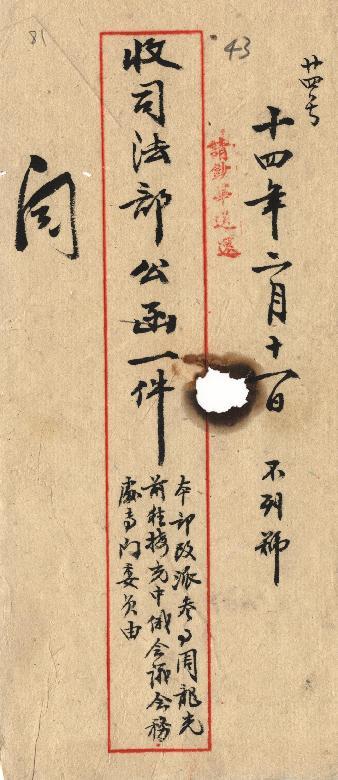 廿四号
十四年二月十一日 不列號
43
請鈔畢送還
收司法部公函一件
本部改派參事周龍光
前往接充中俄会議会務
處專门委員由
81